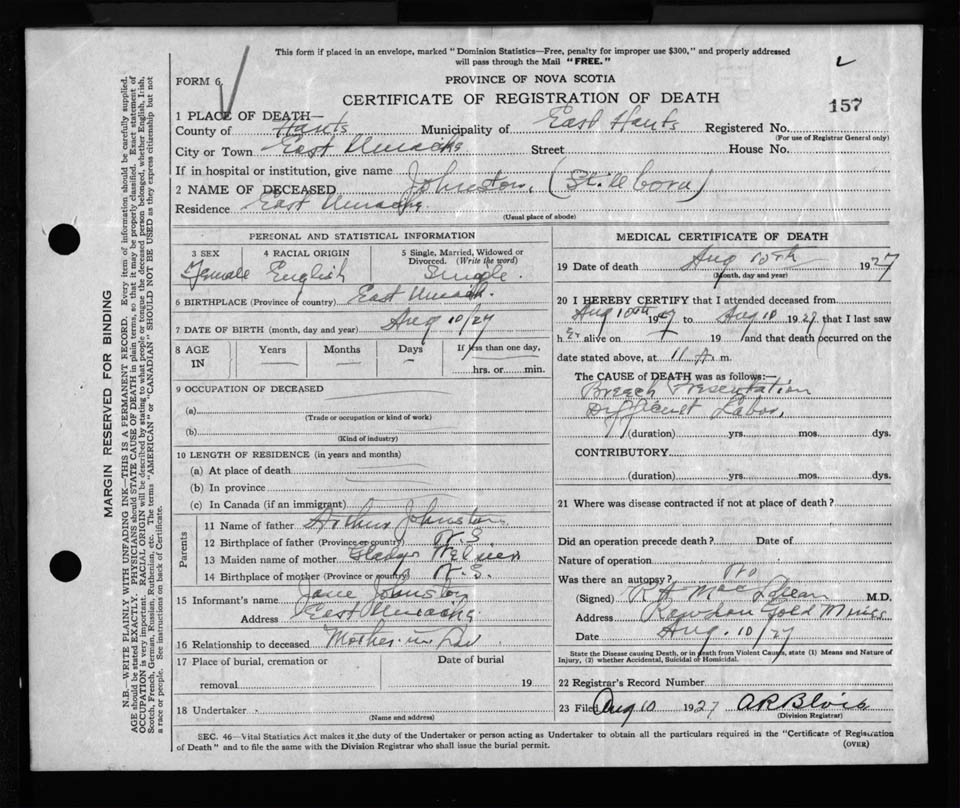 This form if placed in an envelope, marked "Dominion Statistics—Free, penalty for improper use $300," and properly addressed
will pass through the Mail "FREE."
FORM 6
PROVINCE OF NOVA SCOTIA
CERTIFICATE OF REGISTRATION OF DEATH
157
1 PLACE OF DEATH—
County of Hants Municipality of East Hants Registered No.
(For use of Registrar General only)
City or Town East Street House No.
If in hospital or institution, give name
2 NAME OF DECEASED Johnston, (Stillborn)
Residence East
(Usual place of abode)
PERSONAL AND STATISTICAL INFORMATION
3 SEX 4 RACIAL ORIGIN 5 Single, Married, Widowed or
Divorced. (Write the word)
Female English Single.
6 BIRTHPLACE (Province or country) East
7 DATE OF BIRTH (month, day and year) Aug 10/27
8 AGE Years Months Days If less than one day,
IN hrs. or min.
9 OCCUPATION OF DECEASED
(a)
(Trade or occupation or kind of work)
(b)
(Kind of industry)
10 LENGTH OF RESIDENCE (in years and months)
(a) At place of death
(b) In province
(c) In Canada (if an immigrant)
Parents
11 Name of father Arthur Johnston
12 Birthplace of father (Province or country) N.S
13 Maiden name of mother Gladys
14 Birthplace of mother (Province or country) N.S.
15 Informant's name Johnston
Address East
16 Relationship to deceased Mother in Law
17 Place of burial, cremation or Date of burial
removal 19
18 Undertaker
(Name and address)
MEDICAL CERTIFICATE OF DEATH
19 Date of death Aug 10th 1927
(Month, day and year)
20 I HEREBY CERTIFY that I attended deceased from
Aug 10th 1927 to Aug 10 1927 that I last saw
h er alive on 19 and that death occurred on the
date stated above, at 11 A m.
The CAUSE of DEATH was as follows:—
Breach Presentation
Difficult Labor,
(duration) yrs. mos. dys.
CONTRIBUTORY
(duration) yrs. mos. dys.
21 Where was disease contracted if not at place of death?
Did an operation precede death? Date of
Nature of operation
Was there an autopsy? No
(Signed) R H MacLean M.D.
Address Gold Mines
Date Aug. 10/27
State the Disease causing Death, or in death from Violent Causes, state (1) Means and Nature of
Injury, (2) whether Accidental, Suicidal or Homicidal.
22 Registrar's Record Number
23 Filed Aug 10 1927 A R Blois
(Division Registrar)
SEC. 46—Vital Statistics Act makes it the duty of the Undertaker or person acting as Undertaker to obtain all the particulars required in the "Certificate of Registration
of Death" and to file the same with the Division Registrar who shall issue the burial permit. (OVER)
MARGIN RESERVED FOR BINDING
N.B.—WRITE PLAINLY WITH UNFADING INK—THIS IS A PERMANENT RECORD. Every item of information should be carefully supplied.
AGE should be stated EXACTLY. PHYSICIANS should STATE CAUSE OF DEATH in plain terms, so that it may be properly classified. Exact statement of
OCCUPATION is very important. RACIAL ORIGIN will be described by stating to what people or tongue the deceased person belonged, whether English, Irish,
Scotch, French, German, Russian, Ruthenian, etc. The terms "AMERICAN" or "CANADIAN" SHOULD NOT BE USED as they express citizenship but not
a race or people. See instructions on back of Certificate.